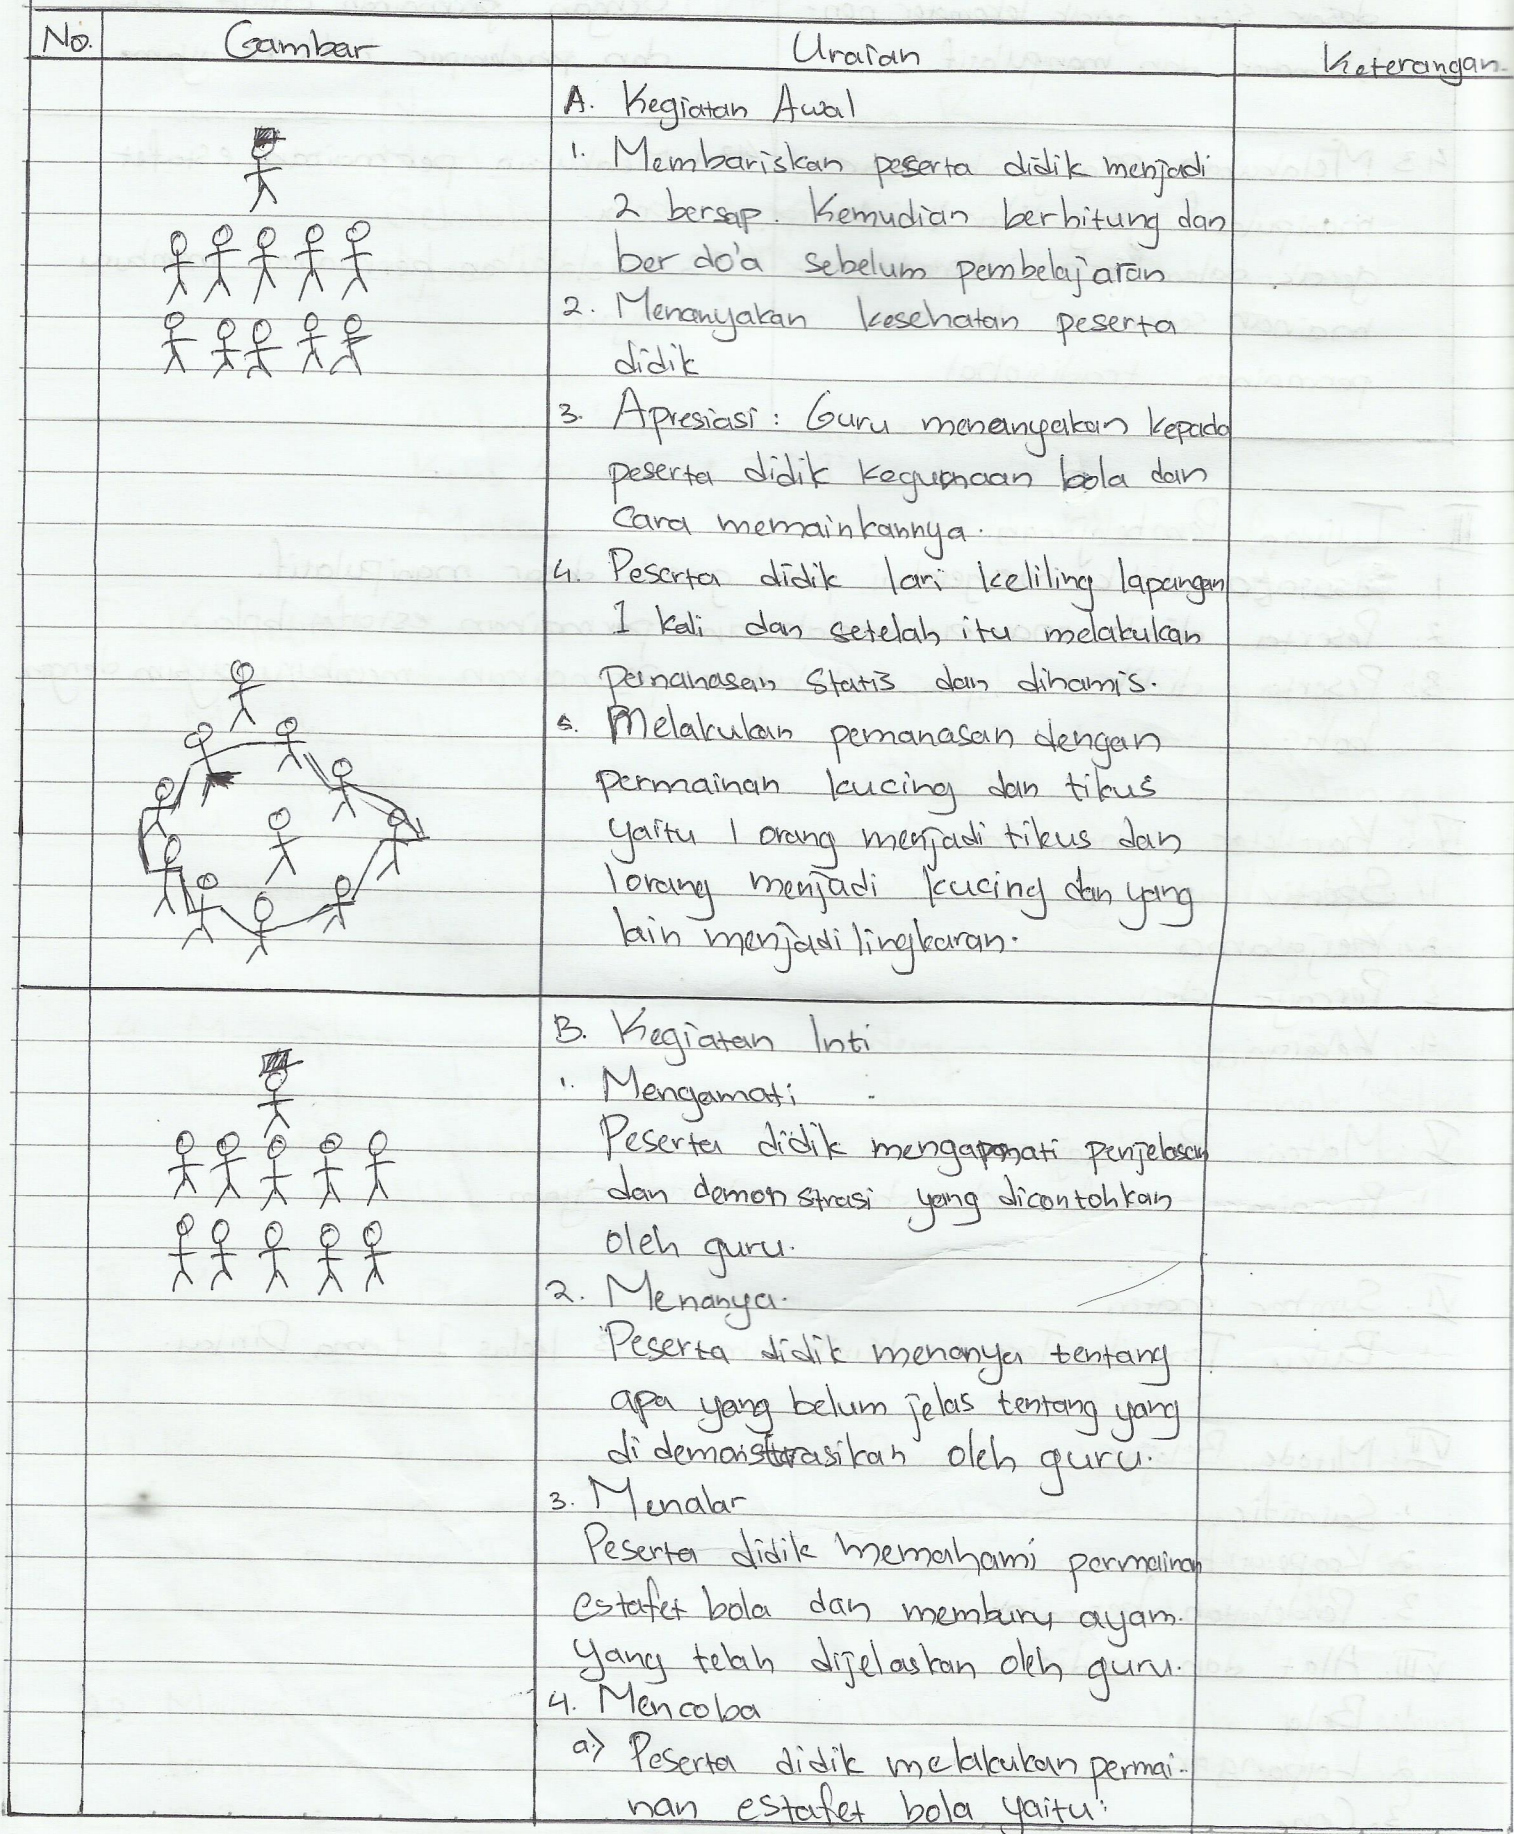 No. Gambar Uraian Keterangan
A. Kegiatan Awal
1. Membariskan peserta didik menjadi
2 bersap. Kemudian berhitung dan
ber do'a sebelum pembelajaran
2. Menanyakan kesehatan peserta
didik
3. Apresiasi : Guru menanyakan kepada
peserta didik kegunaan bola dan
cara memainkannya.
4. Peserta didik lari keliling lapangan
1 kali dan setelah itu melakukan
pemanasan statis dan dinamis.
5. Melakukan pemanasan dengan
permainan kucing dan tikus
yaitu 1 orang menjadi tikus dan
1 orang menjadi kucing dan yang
lain menjadi lingkaran.
B. Kegiatan Inti
1. Mengamati
Peserta didik mengamati penjelasan
dan demonstrasi yang dicontohkan
oleh guru.
2. Menanya.
Peserta didik menanya tentang
apa yang belum jelas tentang yang
di demonstrasikan oleh guru.
3. Menalar
Peserta didik memahami permainan
estafet bola dan memburu ayam.
yang telah dijelaskan oleh guru.
4. Mencoba
a) Peserta didik melakukan permai-
nan estafet bola yaitu: